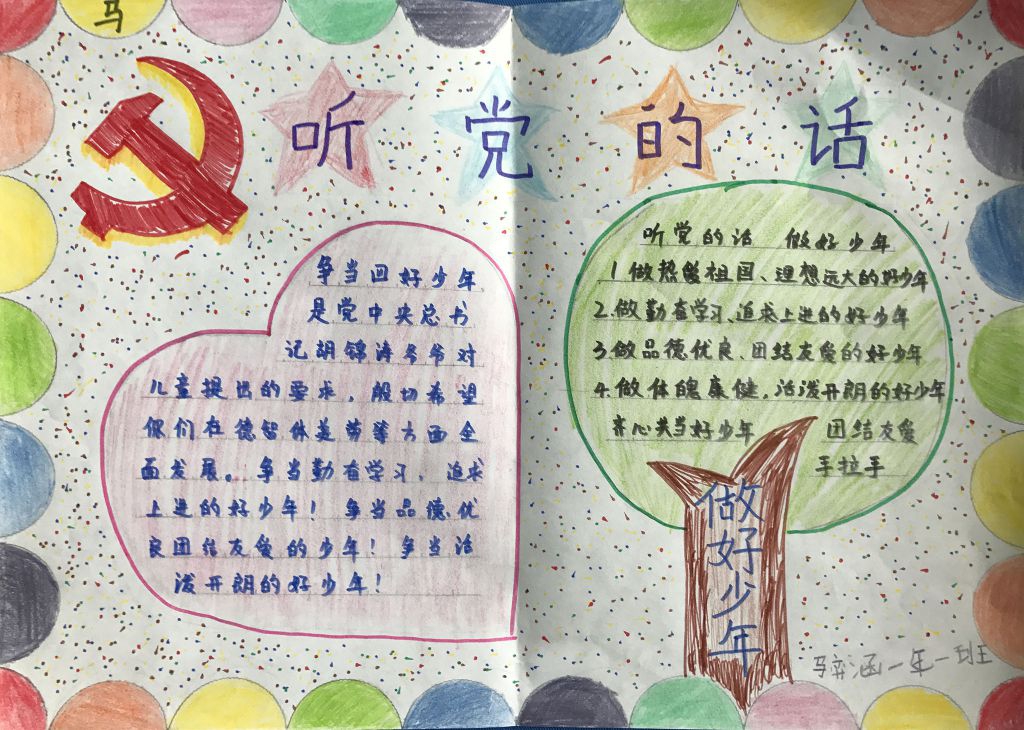 马
听党的话
争当四好少年
是党中央总书
记胡锦涛爷爷对
儿童提出的要求，殷切希望
你们在德智体美劳等方面全
面发展。争当勤奋学习，追求
上进的好少年！争当品德优
良团结友爱的少年！争当活
泼开朗的好少年！
听党的话 做好少年
1.做热爱祖国、理想远大的好少年
2.做勤奋学习、追求上进的好少年
3.做品德优良、团结友爱的好少年
4.做体魄康健，活泼开朗的好少年
齐心共当好少年 团结友爱
手拉手
做好少年
马弈涵一年一班